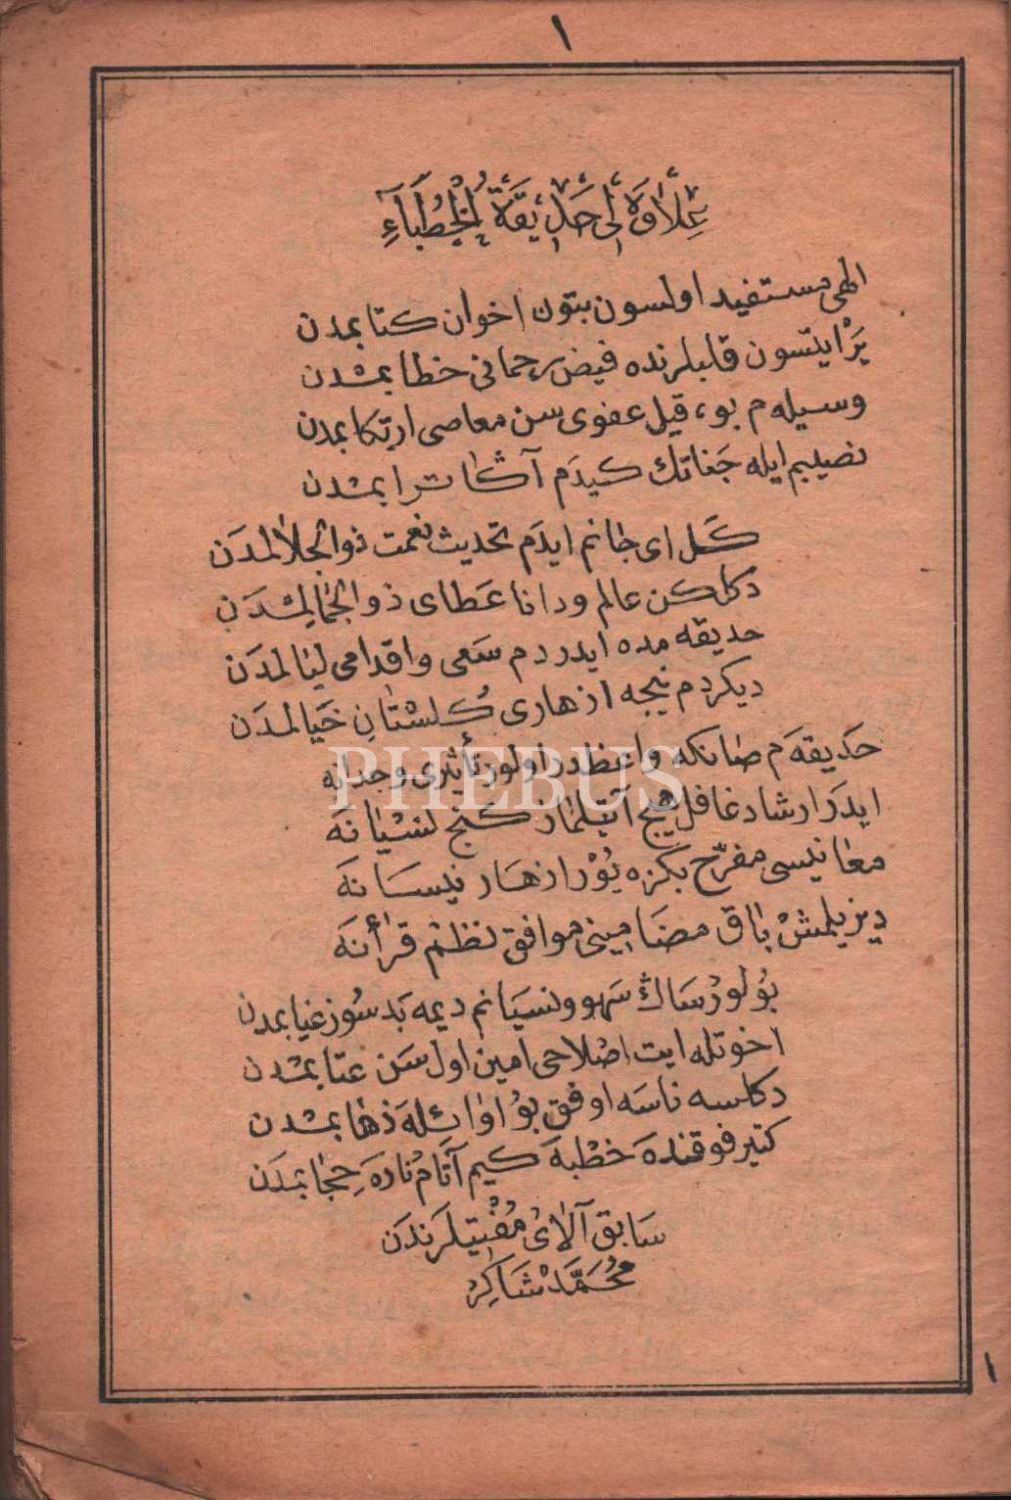 ١
عِلَاوَهٔ لِی حَدِیقَةُ الْخُطَبَآءِ
الهی مستفید اولسون بتون اخوان کتابمدن
یَرْ ایتسون قلبلرنده فیض رحمانی خطابمدن
وسیله م بو، قیل عفوی سن معاصی ارتکابمدن
نصیبم ایله جَنَاتك کیدَم آڭا ترابمدن
کَل ای جانم ایدَم تحدیث نعمت ذوالجلالمدَن
دکلکن عالم و دانا عَطای ذوالجمالمدَن
حدیقه مده ایدردم سَعی و اقدامی لیالمدَن
دیکردم نیجه ازهاری کُلستانِ خیالمدَن
حَدیقه م صانکه واعظدر اولور تأثیری وجدانه
PHEBUS
ایدَر ارشاد غافل هیچ آتیلماز کنج نسْیانَه
معانیسی مفرّح بکزه یُوْر ازهار نیسانَه
دیزیلمشْ باق مضامینی موافق نظم قرأنَه
بُولورسَاڭ سَهو و نسیانم دیمه بَد سُوز غیابمدن
اخوتله ایت اصْلاحی امین اول سَن عتابمدن
دکلسه ناسَه اوفق بُو اوائلهَ ذهابمدن
کتیر فوقندَه خطْبهَ کیم آتام نارَه حِجابمدَن
سَابق آلَایُ مُفْتیلرَندَن
مُحَمَّد شَاکِرْ
١